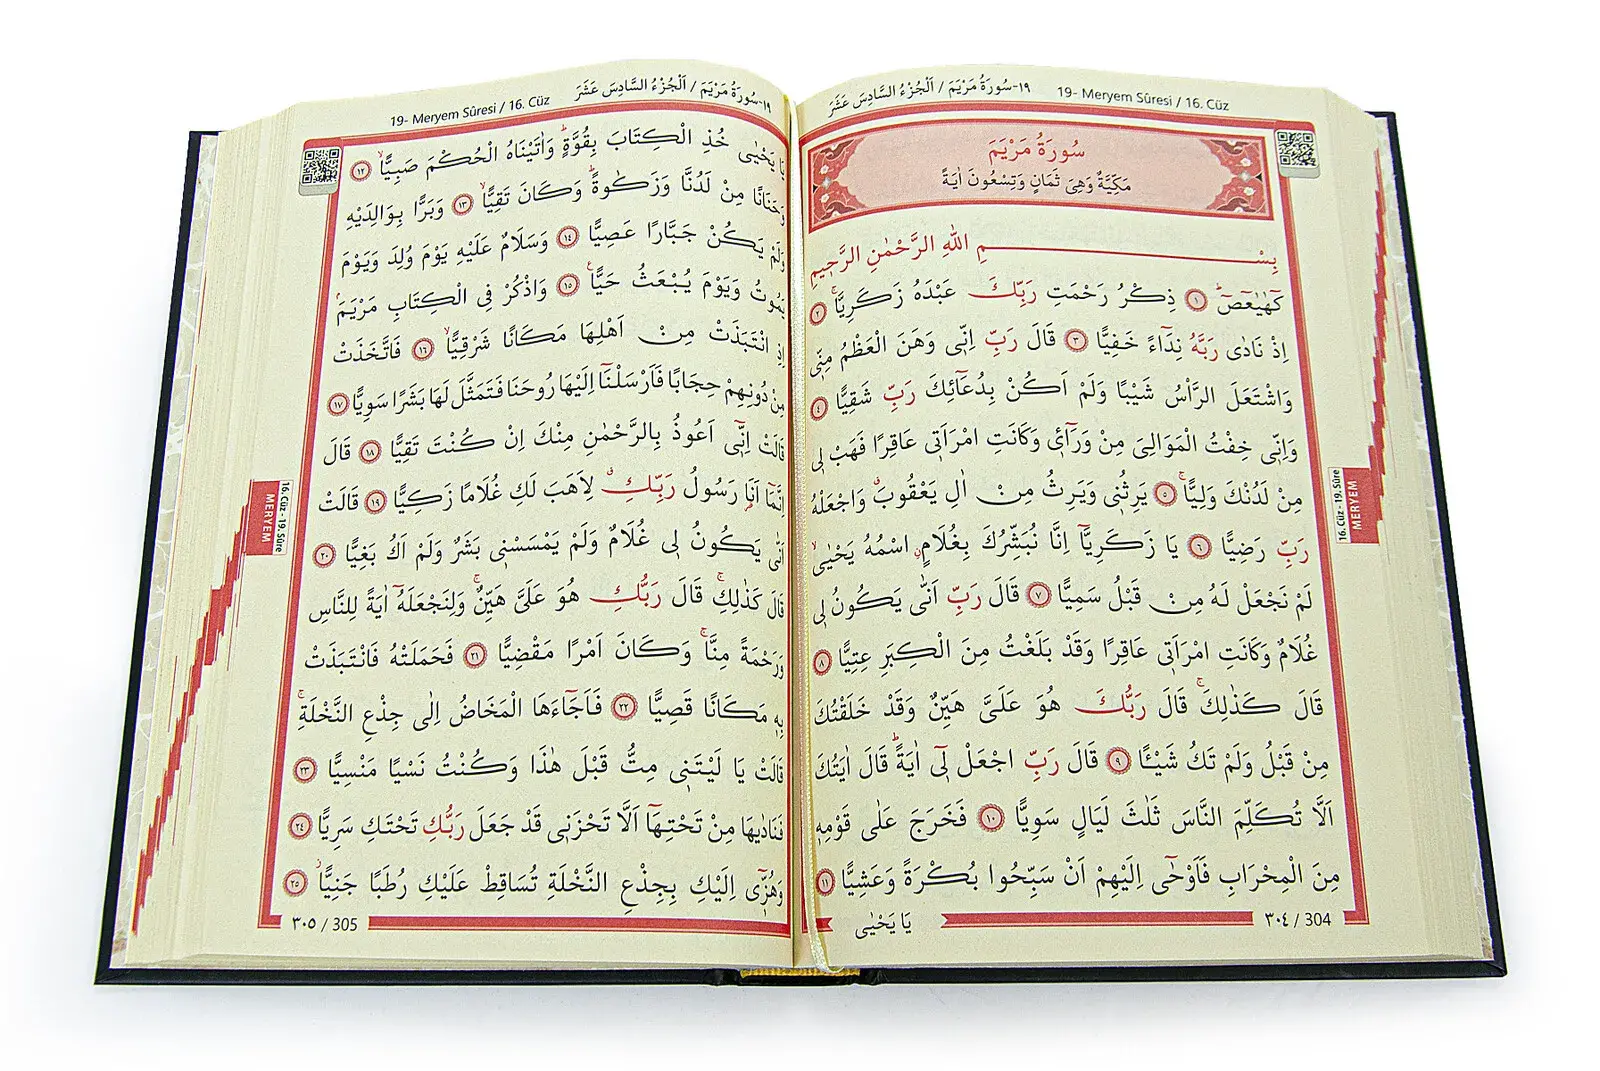 19- Meryem Sûresi / 16. Cüz ١٩-سُورَةُ مَرْيَمَ / اَلْجُزْءُ السَّادِسَ عَشَرَ
سُورَةُ مَرْيَمَ
مَكِّيَّةٌ وَهِىَ ثَمَانٍ وَتِسْعُونَ اٰيَةً
بِسْمِ اللّٰهِ الرَّحْمٰنِ الرَّحِيمِ
كٓهٰيٰعٓصٓ ۜ ﴿١﴾ ذِكْرُ رَحْمَتِ رَبِّكَ عَبْدَهُ زَكَرِيَّاۚ ﴿٢﴾
اِذْ نَادٰى رَبَّهُ نِدَٓاءً خَفِيًّا ﴿٣﴾ قَالَ رَبِّ اِنّٖى وَهَنَ الْعَظْمُ مِنّٖى
وَاشْتَعَلَ الرَّأْسُ شَيْبًا وَلَمْ اَكُنْ بِدُعَٓائِكَ رَبِّ شَقِيًّا ﴿٤﴾
وَاِنّٖى خِفْتُ الْمَوَالِىَ مِنْ وَرَٓائٖ وَكَانَتِ امْرَاَتٖى عَاقِرًا فَهَبْ لٖى
مِنْ لَدُنْكَ وَلِيًّاۙ ﴿٥﴾ يَرِثُنٖى وَيَرِثُ مِنْ اٰلِ يَعْقُوبَۗ وَاجْعَلْهُ
رَبِّ رَضِيًّا ﴿٦﴾ يَا زَكَرِيَّٓا اِنَّا نُبَشِّرُكَ بِغُلَامٍۨ اسْمُهُ يَحْيٰىۙ
لَمْ نَجْعَلْ لَهُ مِنْ قَبْلُ سَمِيًّا ﴿٧﴾ قَالَ رَبِّ اَنّٰى يَكُونُ لٖى
غُلَامٌ وَكَانَتِ امْرَاَتٖى عَاقِرًا وَقَدْ بَلَغْتُ مِنَ الْكِبَرِ عِتِيًّا ﴿٨﴾
قَالَ كَذٰلِكَۚ قَالَ رَبُّكَ هُوَ عَلَىَّ هَيِّنٌ وَقَدْ خَلَقْتُكَ
مِنْ قَبْلُ وَلَمْ تَكُ شَيْـًٔا ﴿٩﴾ قَالَ رَبِّ اجْعَلْ لٖٓى اٰيَةًۜ قَالَ اٰيَتُكَ
اَلَّا تُكَلِّمَ النَّاسَ ثَلٰثَ لَيَالٍ سَوِيًّا ﴿١٠﴾ فَخَرَجَ عَلٰى قَوْمِهٖ
مِنَ الْمِحْرَابِ فَاَوْحٰٓى اِلَيْهِمْ اَنْ سَبِّحُوا بُكْرَةً وَعَشِيًّا ﴿١١﴾
يَا يَحْيٰى
٣٠٤ / 304
16. Cüz - 19. Sûre
MERYEM
19- Meryem Sûresi / 16. Cüz ١٩-سُورَةُ مَرْيَمَ / اَلْجُزْءُ السَّادِسَ عَشَرَ
يَا يَحْيٰى خُذِ الْكِتَابَ بِقُوَّةٍۜ وَاٰتَيْنَاهُ الْحُكْمَ صَبِيًّاۙ ﴿١٢﴾
وَحَنَانًا مِنْ لَدُنَّا وَزَكٰوةًۜ وَكَانَ تَقِيًّاۙ ﴿١٣﴾ وَبَرًّا بِوَالِدَيْهِ
وَلَمْ يَكُنْ جَبَّارًا عَصِيًّا ﴿١٤﴾ وَسَلَامٌ عَلَيْهِ يَوْمَ وُلِدَ وَيَوْمَ
يَمُوتُ وَيَوْمَ يُبْعَثُ حَيًّا۟ ﴿١٥﴾ وَاذْكُرْ فِى الْكِتَابِ مَرْيَمَۢ
اِذِ انْتَبَذَتْ مِنْ اَهْلِهَا مَكَانًا شَرْقِيًّاۙ ﴿١٦﴾ فَاتَّخَذَتْ
مِنْ دُونِهِمْ حِجَابًا فَاَرْسَلْنَٓا اِلَيْهَا رُوحَنَا فَتَمَثَّلَ لَهَا بَشَرًا سَوِيًّا ﴿١٧﴾
قَالَتْ اِنّٖٓى اَعُوذُ بِالرَّحْمٰنِ مِنْكَ اِنْ كُنْتَ تَقِيًّا ﴿١٨﴾ قَالَ
اِنَّمَٓا اَنَا۬ رَسُولُ رَبِّكِۗ لِاَهَبَ لَكِ غُلَامًا زَكِيًّا ﴿١٩﴾ قَالَتْ
اَنّٰى يَكُونُ لٖى غُلَامٌ وَلَمْ يَمْسَسْنٖى بَشَرٌ وَلَمْ اَكُ بَغِيًّا ﴿٢٠﴾
قَالَ كَذٰلِكِۚ قَالَ رَبُّكِ هُوَ عَلَىَّ هَيِّنٌۚ وَلِنَجْعَلَهُٓ اٰيَةً لِلنَّاسِ
وَرَحْمَةً مِنَّاۚ وَكَانَ اَمْرًا مَقْضِيًّا ﴿٢١﴾ فَحَمَلَتْهُ فَانْتَبَذَتْ
بِهٖ مَكَانًا قَصِيًّا ﴿٢٢﴾ فَاَجَٓاءَهَا الْمَخَاضُ اِلٰى جِذْعِ النَّخْلَةِۚ
قَالَتْ يَا لَيْتَنٖى مِتُّ قَبْلَ هٰذَا وَكُنْتُ نَسْيًا مَنْسِيًّا ﴿٢٣﴾
فَنَادٰيهَا مِنْ تَحْتِهَٓا اَلَّا تَحْزَنٖى قَدْ جَعَلَ رَبُّكِ تَحْتَكِ سَرِيًّا ﴿٢٤﴾
وَهُزّٖٓى اِلَيْكِ بِجِذْعِ النَّخْلَةِ تُسَاقِطْ عَلَيْكِ رُطَبًا جَنِيًّاۘ ﴿٢٥﴾
٣٠٥ / 305
16. Cüz - 19. Sûre
MERYEM